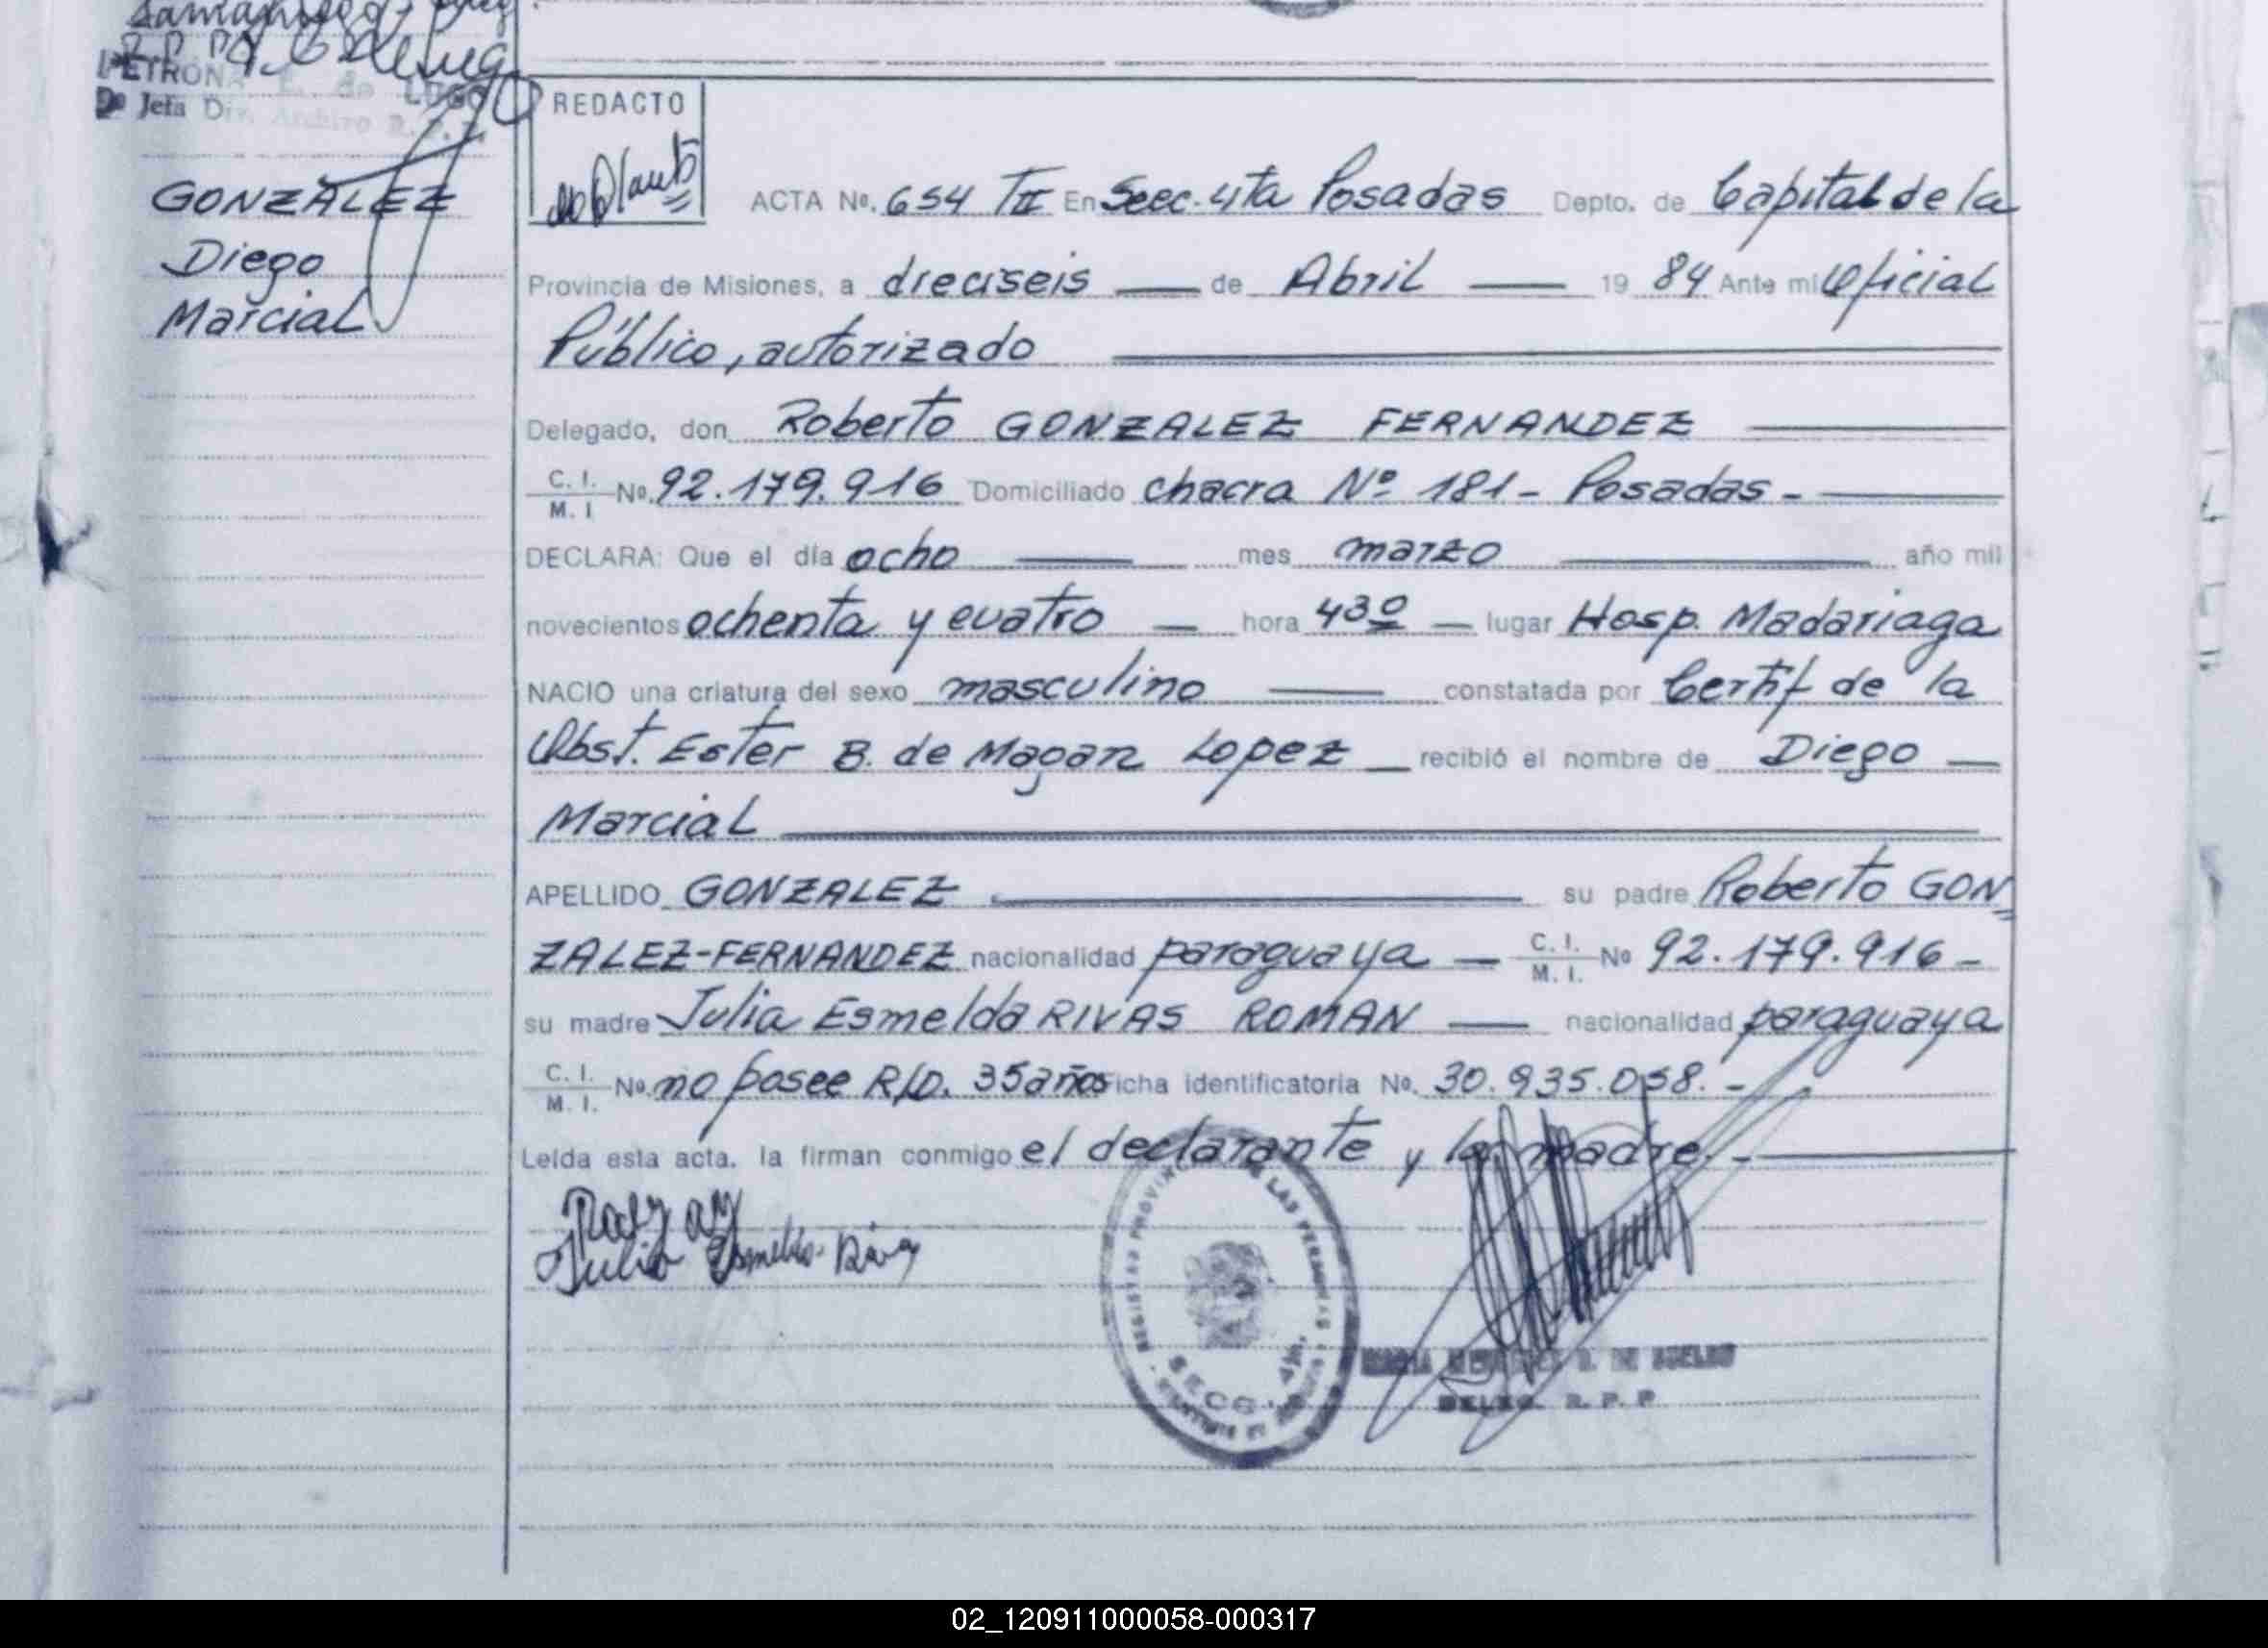 PETRONA E. de LUGO
Jefa Div. Archivo R. P. P.
GONZÁLEZ
Diego
Marcial
REDACTO
ACTA No. 654 TII En Secc. 4ta Posadas Depto. de Capital de la
Provincia de Misiones, a dieciseis de Abril 1984 Ante mi Oficial
Público, autorizado
Delegado, don Roberto GONZALEZ FERNANDEZ
C. I. M. I No. 92.179.916 Domiciliado chacra Nº 181 - Posadas -
DECLARA: Que el día ocho mes marzo año mil
novecientos ochenta y cuatro hora 430 lugar Hosp. Madariaga
NACIO una criatura del sexo masculino constatada por Certif de la
Obst. Ester B. de Magan Lopez recibió el nombre de Diego
Marcial
APELLIDO GONZALEZ su padre Roberto GON
ZALEZ-FERNANDEZ nacionalidad paraguaya C. I. M. I. No 92.179.916 -
su madre Julia Esmelda RIVAS ROMAN nacionalidad paraguaya
C. I. M. I. No. no posee R/D. 35 años Ficha identificatoria No. 30.935.058. -
Leída esta acta. la firman conmigo el declarante y la madre. -
Julia Esmelda Rivas
SECC. 4ta.
DELEG. R. P. P
02_120911000058-000317